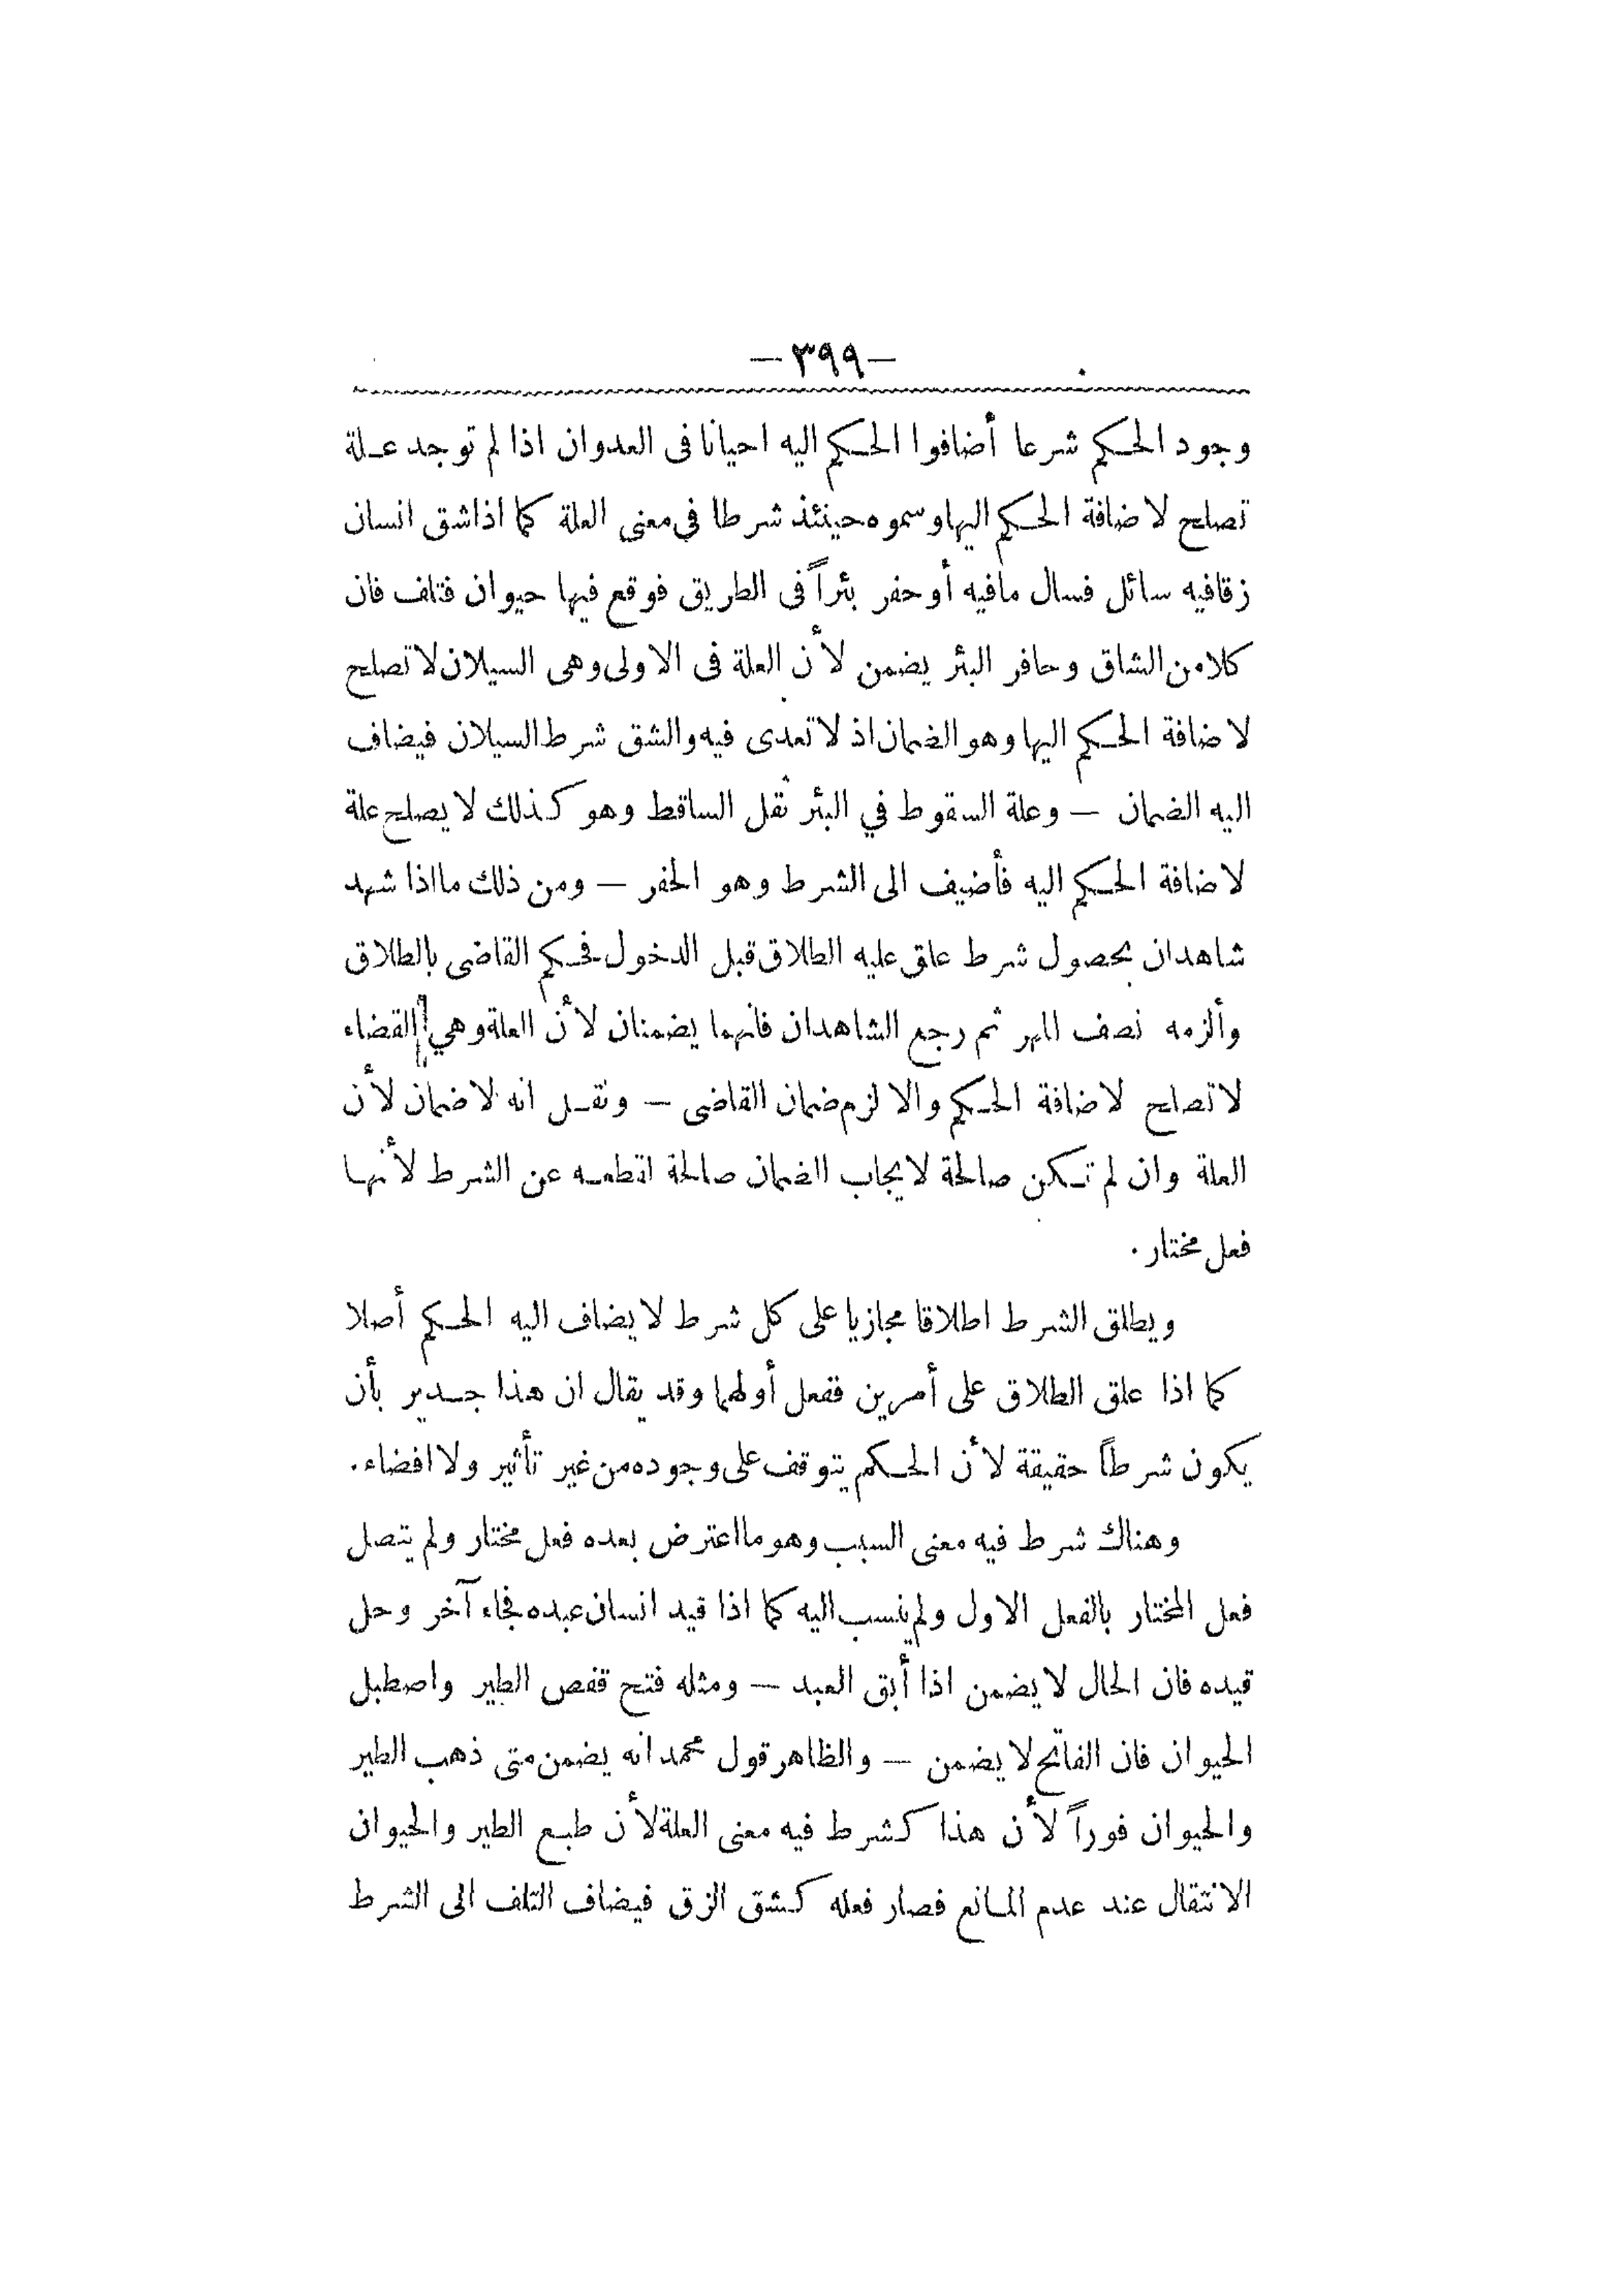 — ٣٩٩ —
وجود الحكم شرعا أضافوا الحكم اليه احيانا فى العدوان اذا لم توجد علة
تصلح لاضافة الحكم اليها وسموه حينئذ شرطا في معنى العلة كما اذا شق انسان
زقا فيه سائل فسال ما فيه أو حفر بئراً فى الطريق فوقع فيها حيوان فتلف فان
كلا من الشاق وحافر البئر يضمن لأن العلة فى الاولى وهى السيلان لا تصلح
لاضافة الحكم اليها وهو الضمان اذ لا تعدى فيه والشق شرط السيلان فيضاف
اليه الضمان — وعلة السقوط في البئر ثقل الساقط وهو كذلك لا يصلح علة
لاضافة الحكم اليه فأضيف الى الشرط وهو الحفر — ومن ذلك ما اذا شهد
شاهدان بحصول شرط علق عليه الطلاق قبل الدخول فحكم القاضى بالطلاق
وألزمه نصف المهر ثم رجع الشاهدان فانهما يضمنان لأن العلة وهي القضاء
لا تصلح لاضافة الحكم والا لزم ضمان القاضى — ونقل انه لا ضمان لأن
العلة وان لم تكن صالحة لايجاب الضمان صالحة لقطعه عن الشرط لأنها
فعل مختار .
ويطلق الشرط اطلاقا مجازيا على كل شرط لا يضاف اليه الحكم أصلا
كما اذا علق الطلاق على أمرين ففعل أولهما وقد يقال ان هذا جدير بأن
يكون شرطاً حقيقة لأن الحكم يتوقف على وجوده من غير تأثير ولا افضاء.
وهناك شرط فيه معنى السبب وهو ما اعترض بعده فعل مختار ولم يتصل
فعل المختار بالفعل الاول ولم ينسب اليه كما اذا قيد انسان عبده فجاء آخر وحل
قيده فان الحال لا يضمن اذا أبق العبد — ومثله فتح قفص الطير واصطبل
الحيوان فان الفاتح لا يضمن — والظاهر قول محمد انه يضمن متى ذهب الطير
والحيوان فوراً لأن هذا كشرط فيه معنى العلة لأن طبع الطير والحيوان
الانتقال عند عدم المانع فصار فعله كشق الزق فيضاف التلف الى الشرط